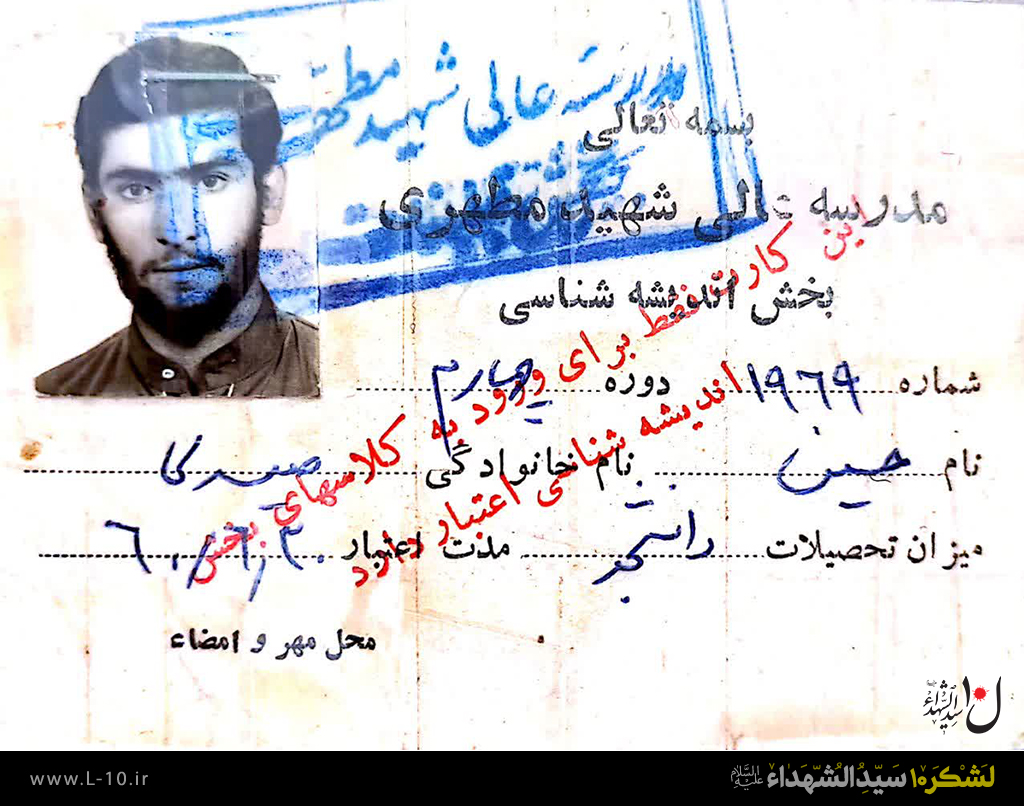 مدرسه عالی شهید مطهری
بسمه تعالی
مدرسه عالی شهید مطهری
بخش اندیشه شناسی
شماره ۱۹۶۹ دوره چهارم
نام حسین نام خانوادگی صیدی
میزان تحصیلات دانشجو مدت اعتبار ۶۰/۶/۳۰
این کارت فقط برای ورود به کلاسهای بخش
اندیشه شناسی اعتبار دارد
محل مهر و امضاء
ل۱۰ سیدالشهداء
www.L-10.ir
لَشْکَرِ۱۰ سَیِّدُالشُّهَداء عَلَیْهِ السَّلام